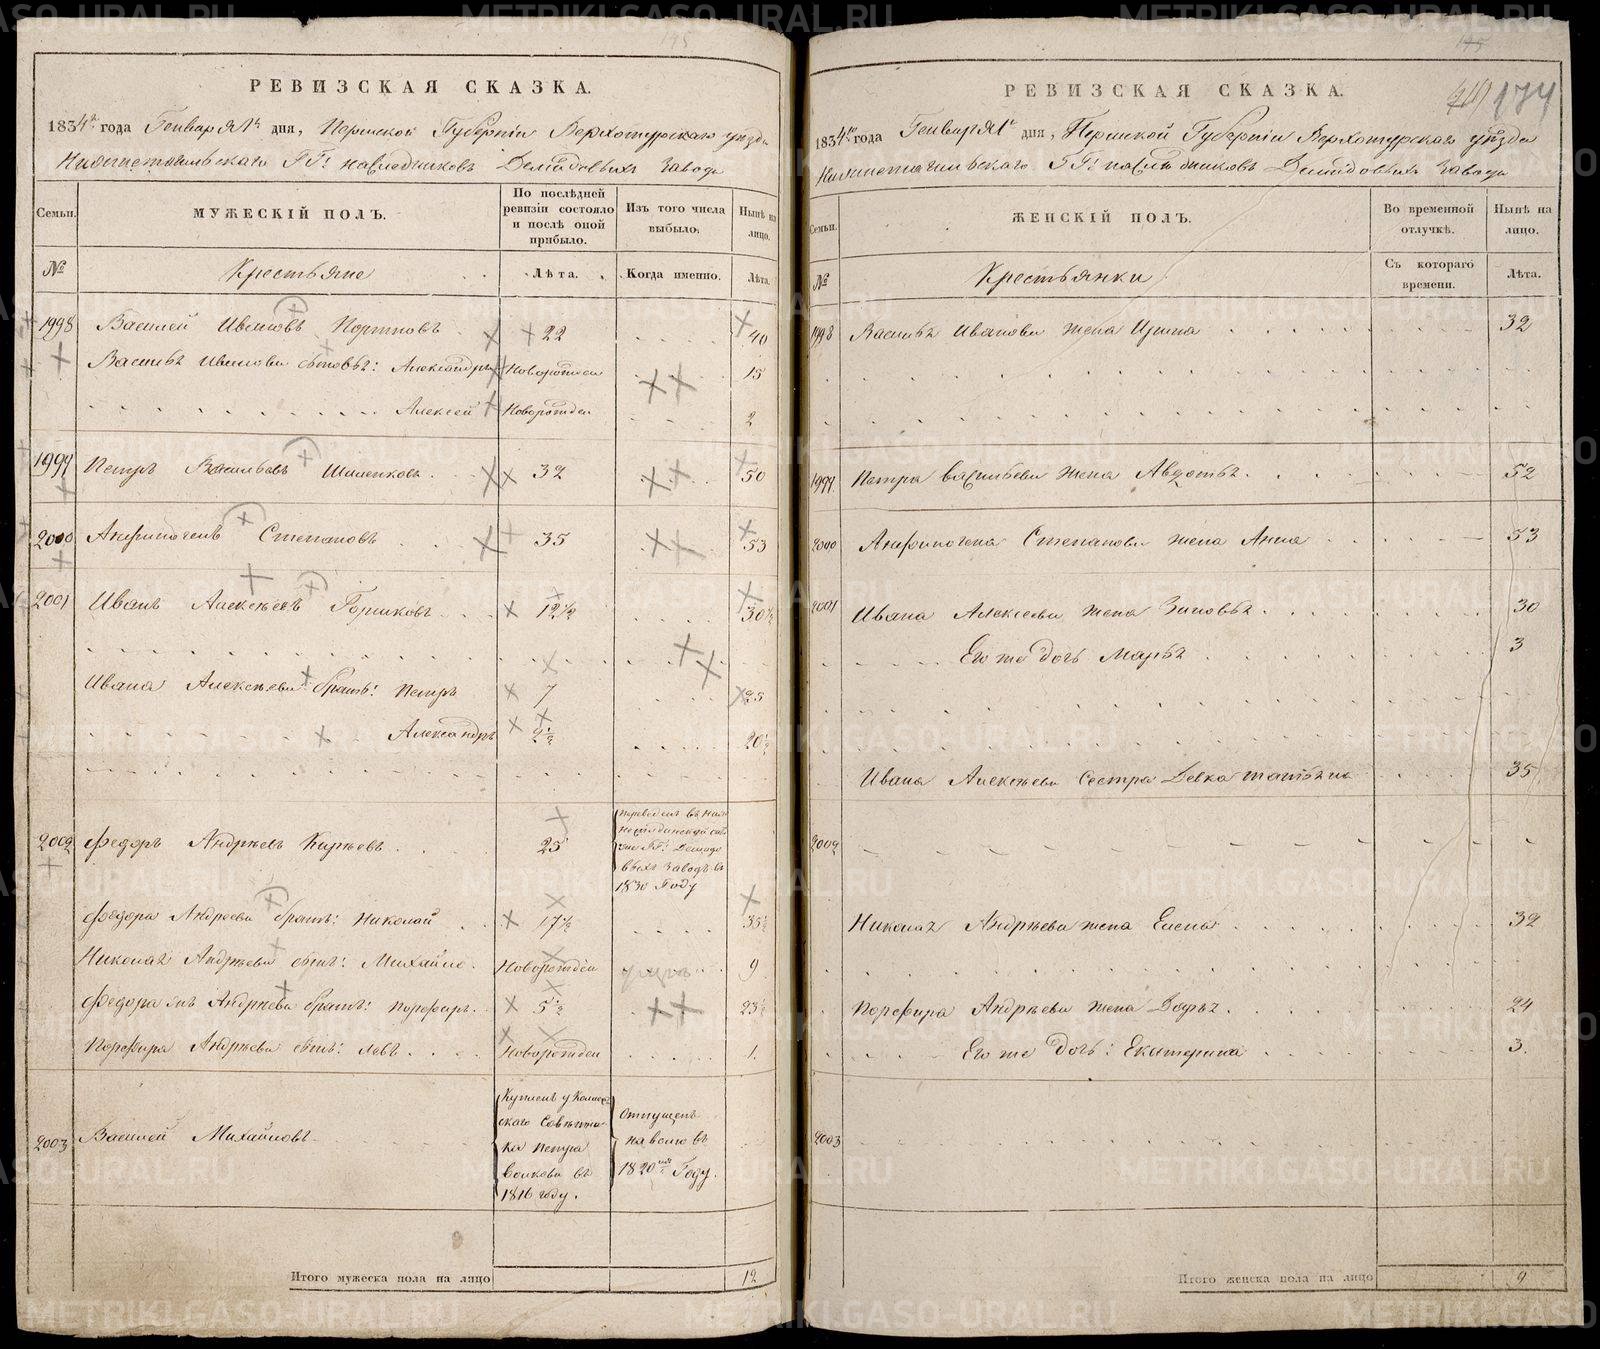 РЕВИЗСКАЯ СКАЗКА.
1834го года Генваря 1го дня, Пермской Губерніи Верхотурскаго уѣзда
Нижнетагильскаго ГГ: наслѣдниковъ Демидовыхъ завода
Семьи.
МУЖЕСКІЙ ПОЛЪ.
По послѣдней ревизіи состояло и послѣ оной прибыло.
Изъ того числа выбыло.
Нынѣ на лицо.
№
Крестьяне
Лѣта.
Когда именно.
Лѣта.
1998 Василей Ивановъ Портновъ 22 40
Василья Иванова сыновья: Александръ Новорожден 15
Алексей Новорожден 2
1999 Петръ Васильевъ 32 50
2000 Анфиногенъ Степановъ 35 53
2001 Иванъ Алексѣевъ Горшковъ 12½ 30½
Ивана Алексѣева братья: Петръ 7 25
Александръ 2½ 20½
2002 Федоръ Андрѣевъ Кирѣевъ 25 переведенъ въ
1830 Году
Федора Андрѣева братъ: Николай 17½ 35½
Николая Андрѣева сынъ: Михайло Новорожден 9
Федора Андрѣева братъ: Порфиръ 5½ 23½
Порфира Андрѣева сынъ: Левъ Новорожден 1.
2003 Василей Михайловъ Купленъ у
скаго Совѣтни
ка Петра
Волкова въ
1816 году.
Отпущенъ
на волю въ
1820мъ Году.
Итого мужеска пола на лицо 12
174
РЕВИЗСКАЯ СКАЗКА.
1834го года Генваря 1го дня, Пермской Губерніи Верхотурскаго уѣзда
Нижнетагильскаго ГГ: наслѣдниковъ Демидовыхъ завода
Семьи.
ЖЕНСКІЙ ПОЛЪ.
Во временной отлучкѣ.
Нынѣ на лицо.
№
Крестьянки
Съ котораго времени.
Лѣта.
1998 Василья Иванова жена Ирина 32
1999 Петра Васильева жена Авдотья 52
2000 Анфиногена Степанова жена Анна 53
2001 Ивана Алексѣева жена Зиновья 30
Его же дочь Марья 3
Ивана Алексѣева сестра Девка Татьяна 35
2002
Николая Андрѣева жена Елена 32
Порфира Андрѣева жена Дарья 24
Его же дочь: Екатерина 3.
2003
Итого женска пола на лицо 9
METRIKI.GASO-URAL.RU